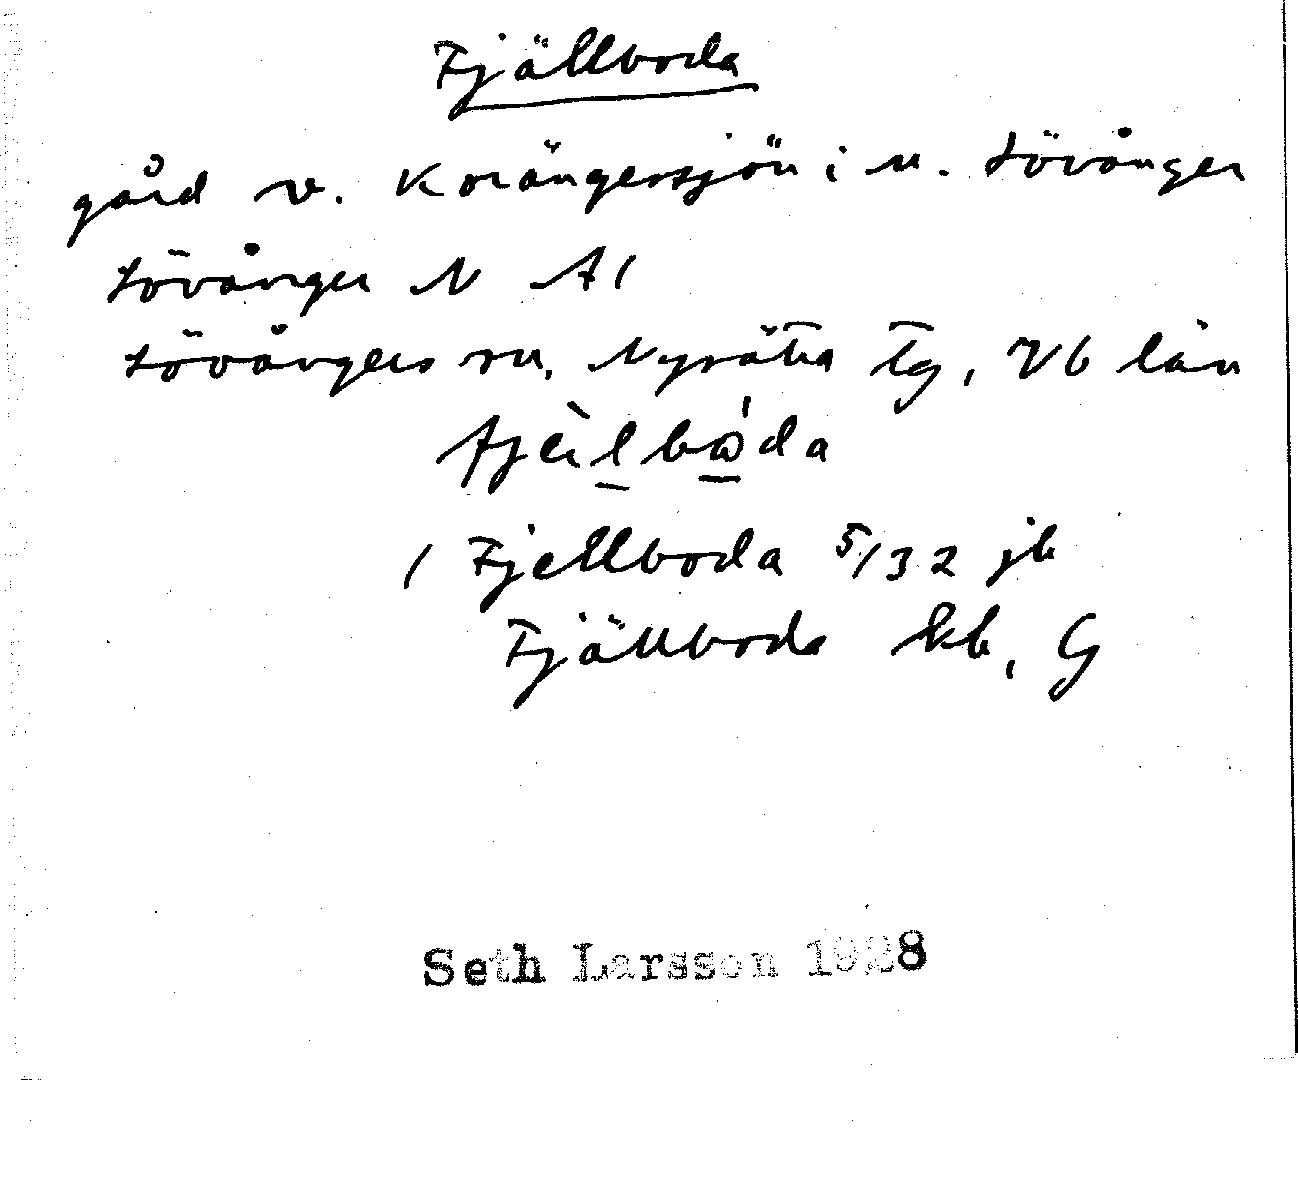 Fjällboda
gård v. Korångerssjön i n. Lövånger
Lövånger N A1
Lövångers sn, Nysätra tg, Vb län
1 Fjellboda 5/32 jb
Fjällboda kb, G
Seth Larsson 1928